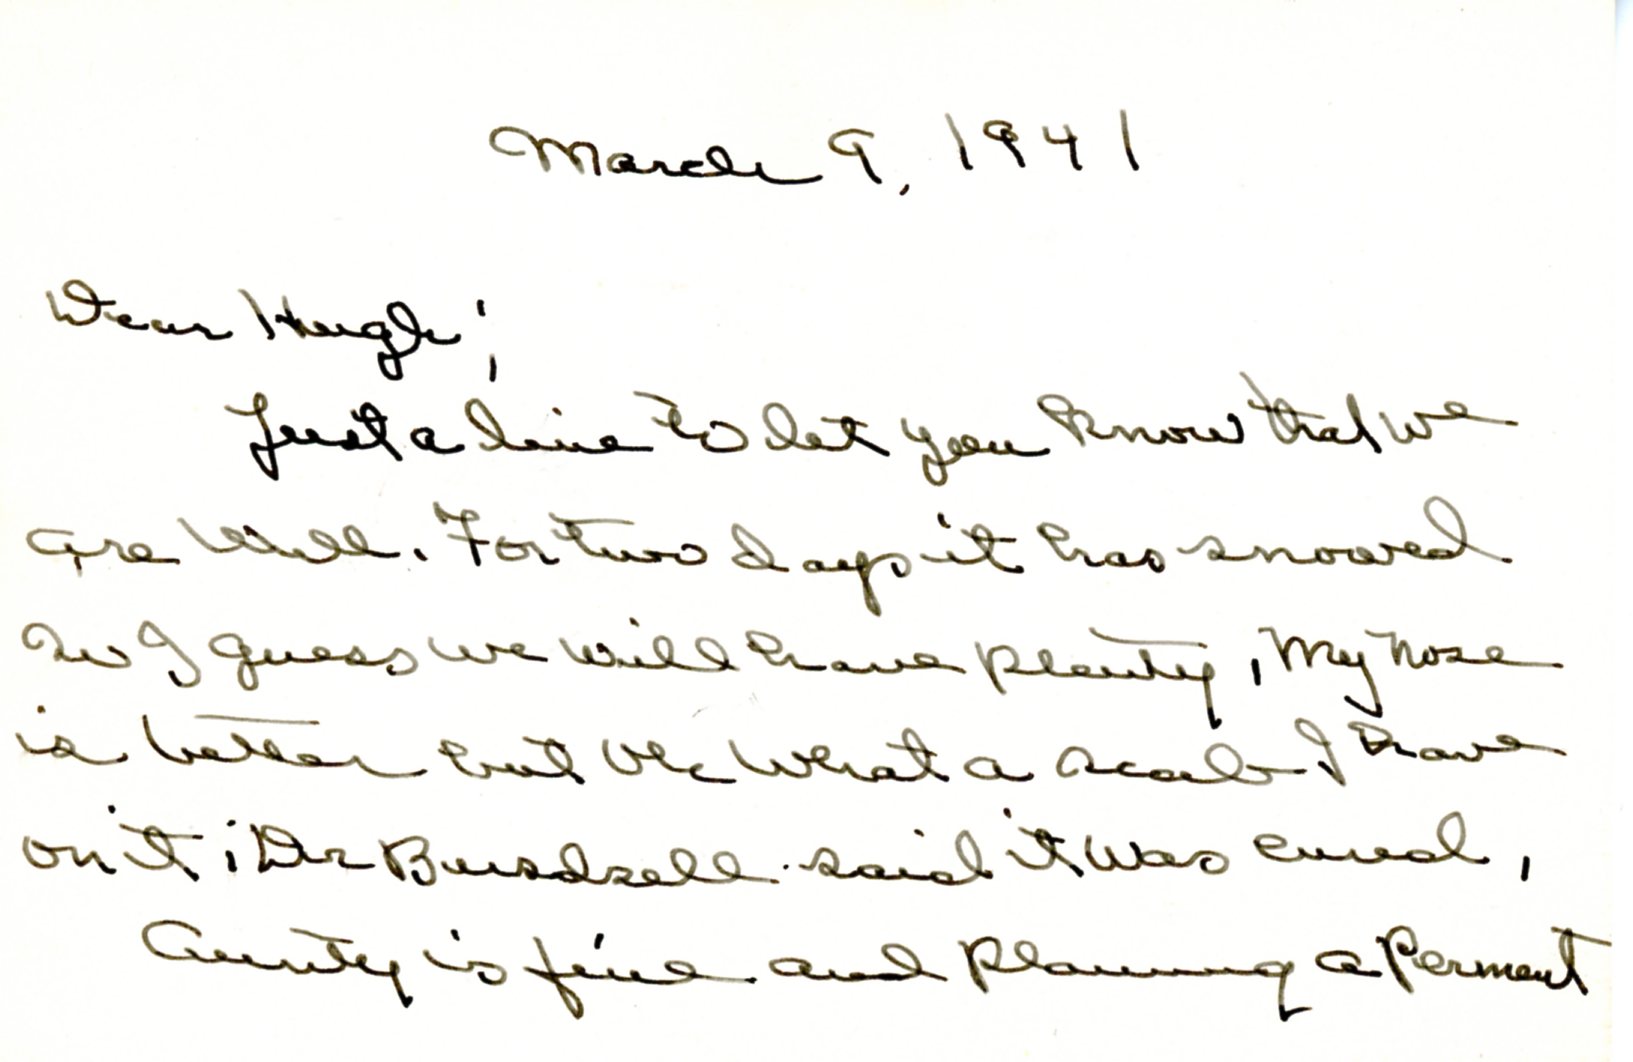 March 9, 1941
Dear Hugh;
Just a line to let you know that we
are well. For two days it has snowed
so I guess we will have plenty, My nose
is better but Oh what a scab I have
on it, Dr said it was cured,
Aunty is fine and planning a Perment